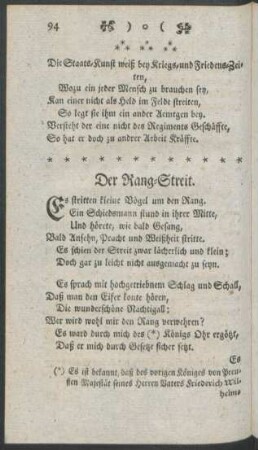 94 ❧ ) o ( ☙
** ** **
Die Staats-Kunst weiß bey Kriegs-und Friedens-Zei-
ten,
Wozu ein jeder Mensch zu brauchen sey,
Kan einer nicht als Held im Felde streiten,
So legt sie ihm ein ander Aemtgen bey.
Versteht der eine nicht des Regiments Geschäffte,
So hat er doch zu andrer Arbeit Kräffte.
* * * * * * * * * * * * * * * * *
Der Rang-Streit.
Es stritten kleine Vögel um den Rang.
Ein Schiedsmann stund in ihrer Mitte,
Und hörete, wie bald Gesang,
Bald Ansehn, Pracht und Weißheit stritte.
Es schien der Streit zwar lächerlich und klein;
Doch gar zu leicht nicht ausgemacht zu seyn.
Es sprach mit hochgetriebnem Schlag und Schall,
Daß man den Eifer konte hören,
Die wunderschöne Nachtigall:
Wer wird wohl mir den Rang verwehren?
Es ward durch mich des (*) Königs Ohr ergötzt,
Daß er mich durch Gesetz sicher setzt.
Es
(*) Es ist bekannt, daß des vorigen Königes von Preu-
sen Majestät seines Herren Vaters Friederich Wil-
helms